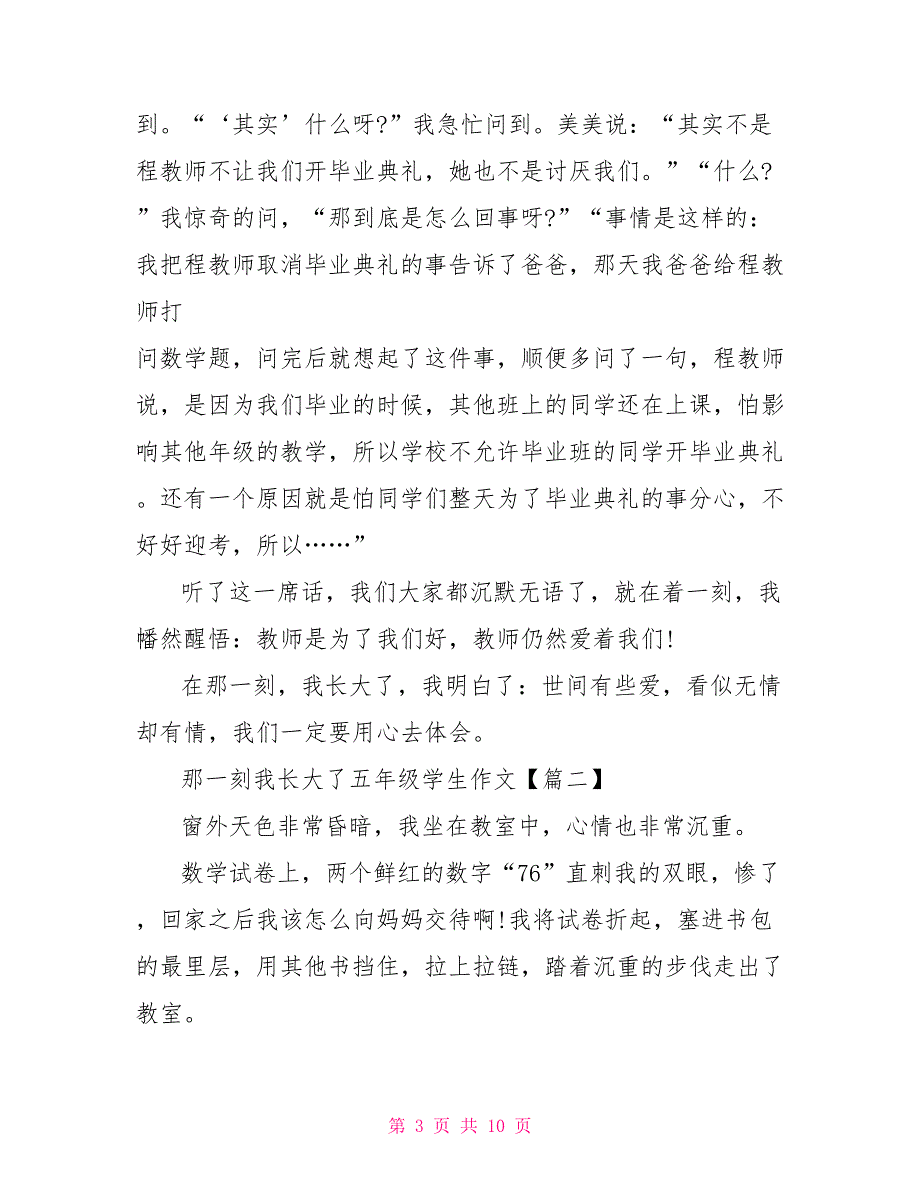 到。“‘其实’什么呀?”我急忙问到。美美说：“其实不是
程教师不让我们开毕业典礼，她也不是讨厌我们。”“什么?
”我惊奇的问，“那到底是怎么回事呀?”“事情是这样的：
我把程教师取消毕业典礼的事告诉了爸爸，那天我爸爸给程教
师打
问数学题，问完后就想起了这件事，顺便多问了一句，程教师
说，是因为我们毕业的时候，其他班上的同学还在上课，怕影
响其他年级的教学，所以学校不允许毕业班的同学开毕业典礼
。还有一个原因就是怕同学们整天为了毕业典礼的事分心，不
好好迎考，所以……”
听了这一席话，我们大家都沉默无语了，就在着一刻，我
幡然醒悟：教师是为了我们好，教师仍然爱着我们!
在那一刻，我长大了，我明白了：世间有些爱，看似无情
却有情，我们一定要用心去体会。
那一刻我长大了五年级学生作文【篇二】
窗外天色非常昏暗，我坐在教室中，心情也非常沉重。
数学试卷上，两个鲜红的数字“76”直刺我的双眼，惨了
，回家之后我该怎么向妈妈交待啊!我将试卷折起，塞进书包
的最里层，用其他书挡住，拉上拉链，踏着沉重的步伐走出了
教室。
第 3 页 共 10 页